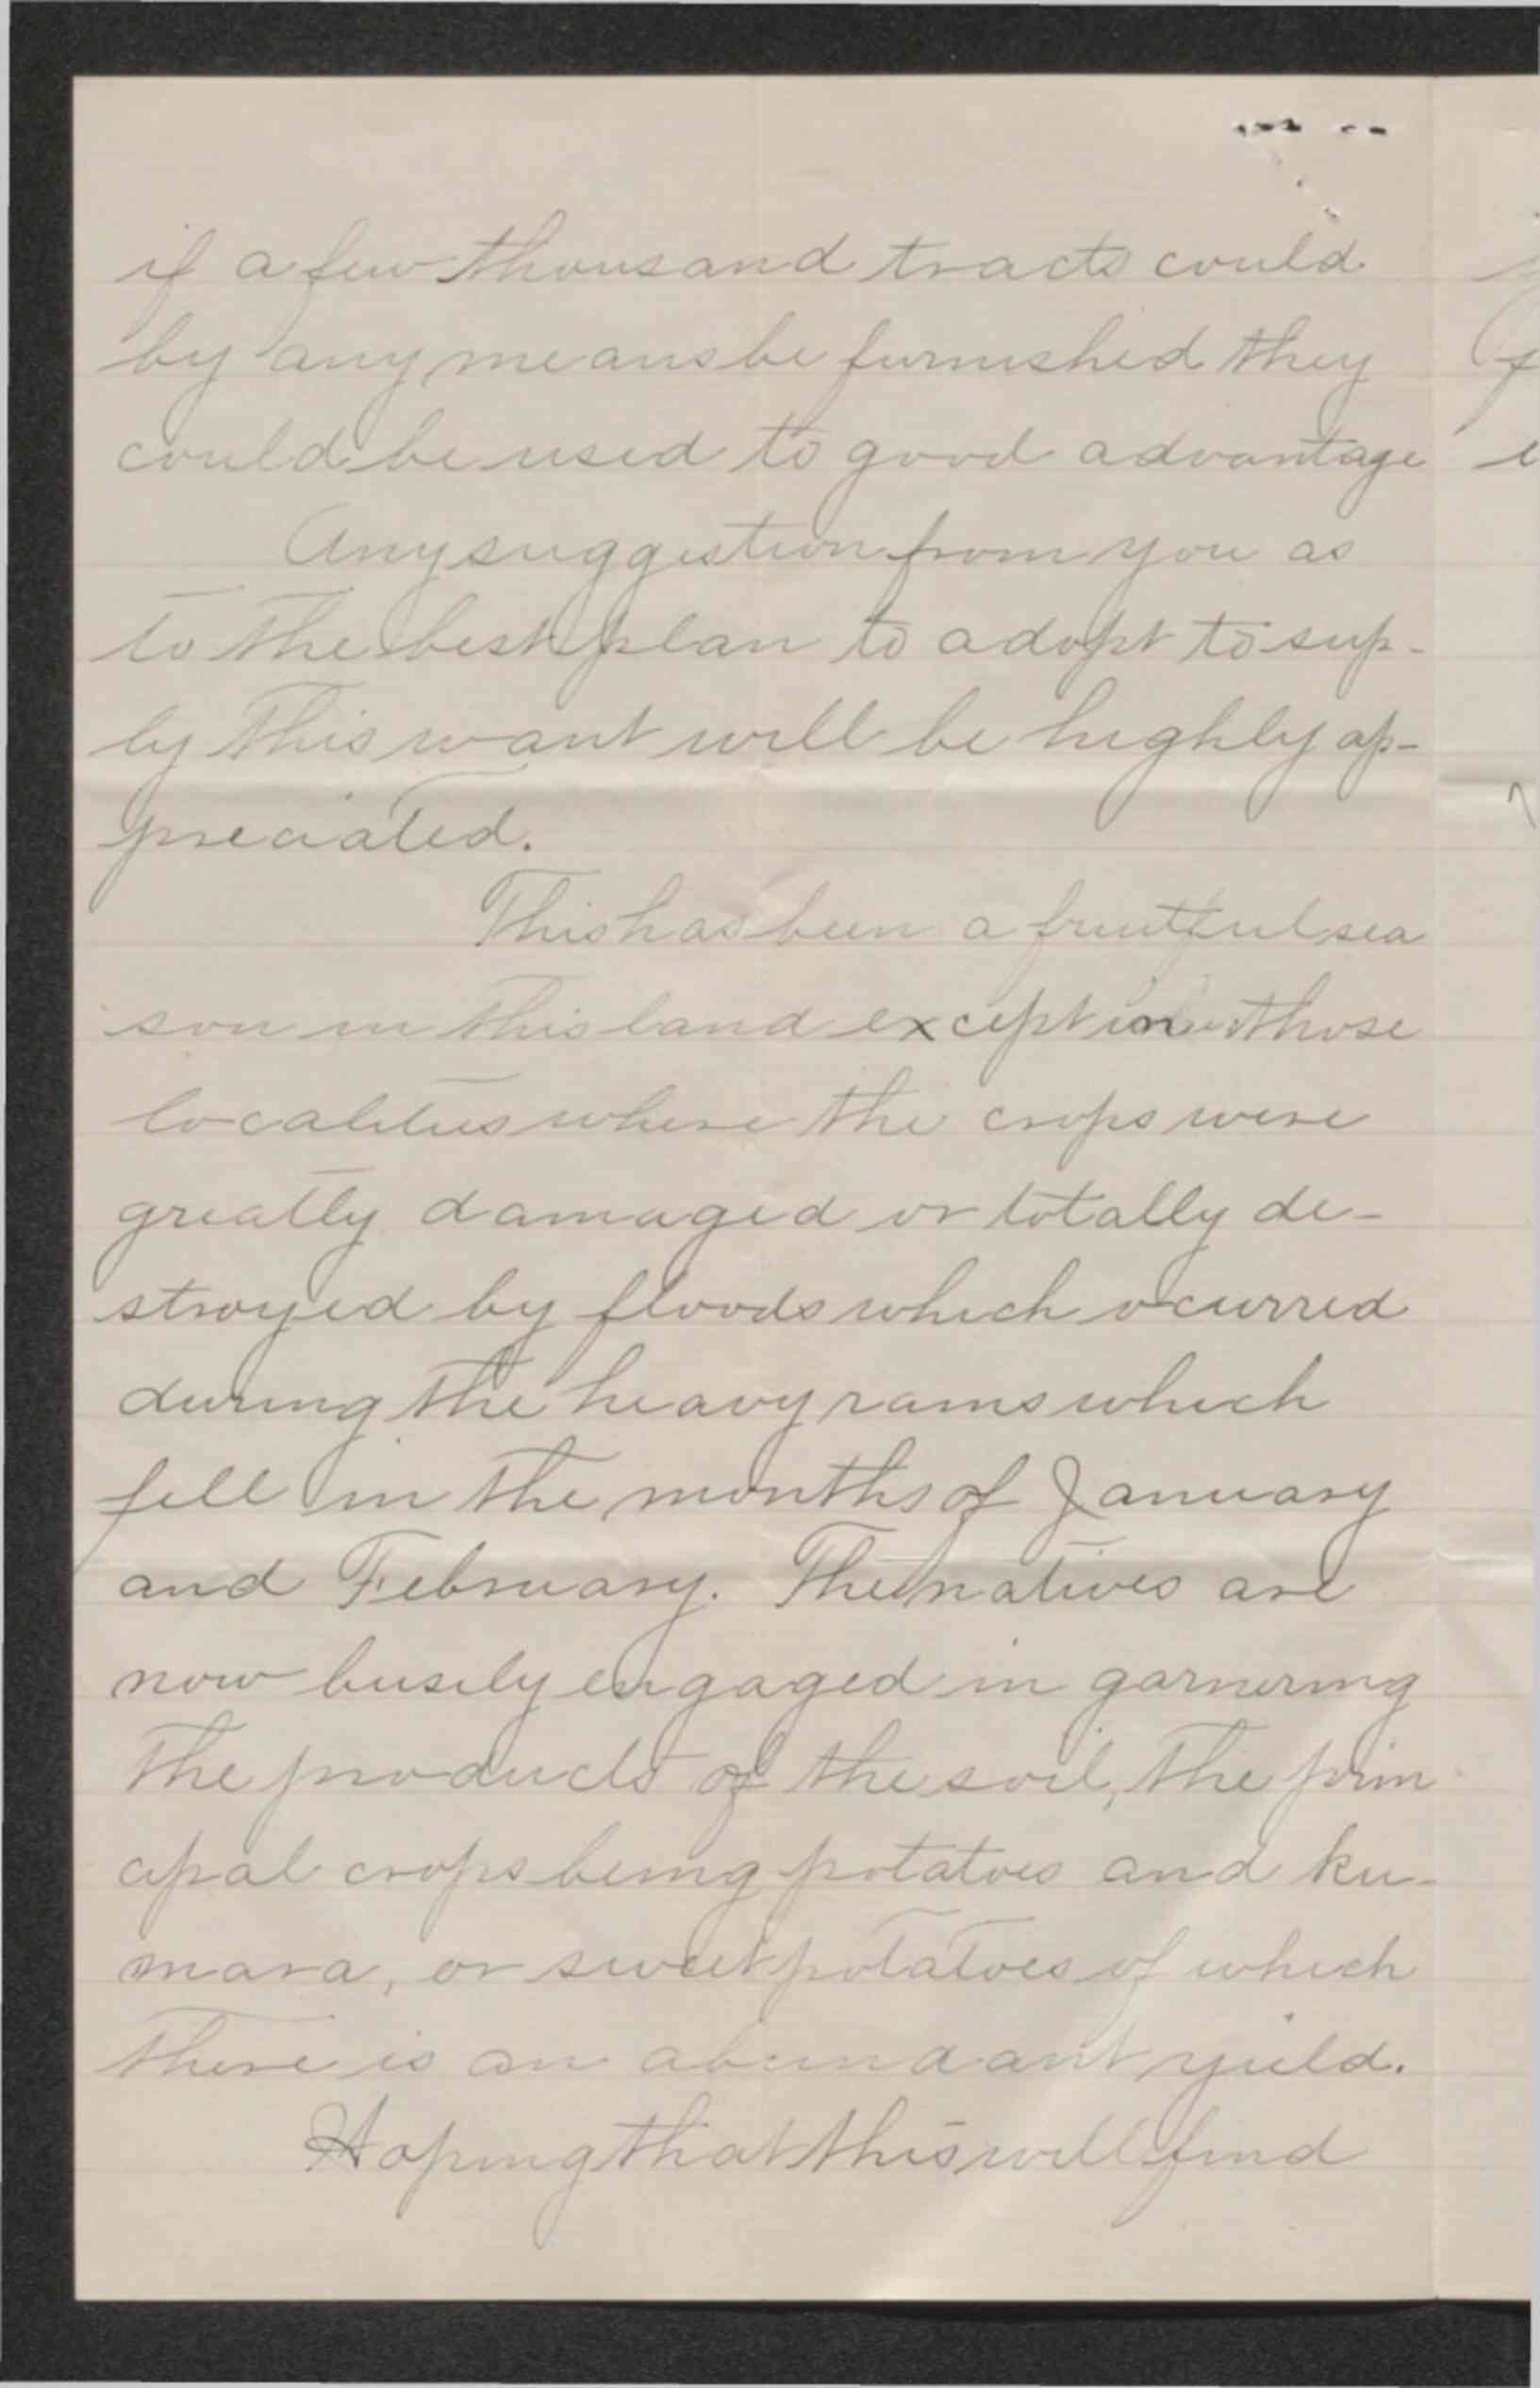 if a few thousand tracts could
by any means be furnished they
could be used to good advantage
Any suggestion from you as
to the best plan to adopt to sup-
ly this want will be highly ap-
preciated.
This has been a fruitful sea
son in this land except in those
localities where the crops were
greatly damaged or totally de-
stroyed by floods which ocurred
during the heavy rains which
fell in the months of January
and February. The natives are
now busily engaged in garnering
the products of the soil, the prin
cipal crops being potatoes and ku-
mara, or sweet potatoes of which
there is an abundant yield.
Hoping that this will find